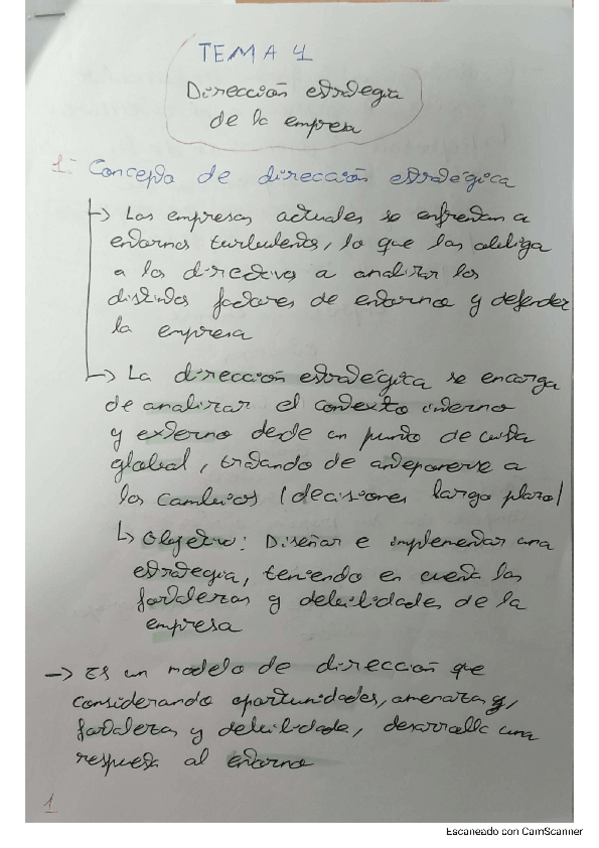 TEMA 4
Dirección estrategia
de la empresa
1- Concepto de dirección estratégica
→ Las empresas actuales se enfrentan a
entornos turbulentos, lo que las obliga
a los directivos a analizar los
distintos factores de entorno y defender
la empresa
→ La dirección estratégica se encarga
de analizar el contexto interno
y externo desde un punto de vista
global, tratando de anteponerse a
los cambios (decisiones largo plazo)
↳ Objetivo: Diseñar e implementar una
estrategia, teniendo en cuenta las
fortalezas y debilidades de la
empresa
→ Es un modelo de dirección que
considerando oportunidades, amenazas,
fortalezas y debilidades, desarrolla una
respuesta al entorno
1
Escaneado con CamScanner